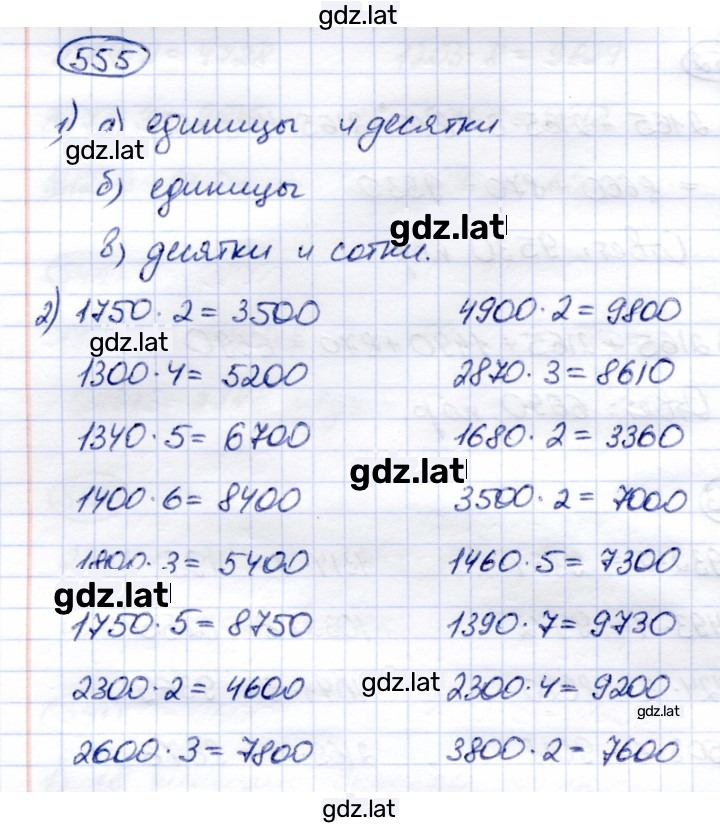 gdz.lat
555
1) а) единицы и десятки
gdz.lat
б) единицы
gdz.lat
в) десятки и сотни.
2) 1750 · 2 = 3500 4900 · 2 = 9800
gdz.lat
1300 · 4 = 5200 2870 · 3 = 8610
1340 · 5 = 6700 1680 · 2 = 3360
gdz.lat
1400 · 6 = 8400 3500 · 2 = 7000
1800 · 3 = 5400 1460 · 5 = 7300
gdz.lat
1750 · 5 = 8750 1390 · 7 = 9730
2300 · 2 = 4600 gdz.lat 2300 · 4 = 9200
gdz.lat
2600 · 3 = 7800 3800 · 2 = 7600
gdz.lat